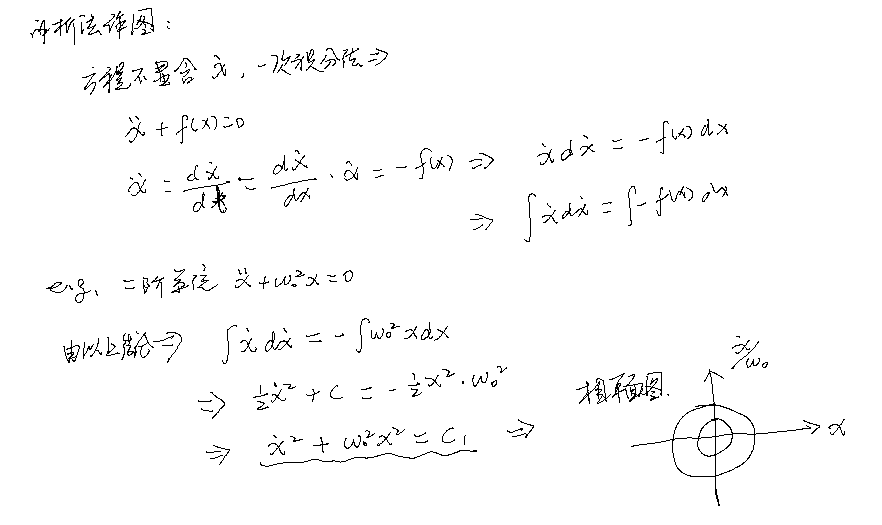 解析法作图：
方程不显含 ẋ，一次积分法⇒
ẍ + f(x)=0
ẍ = dẋ/dt = dẋ/dx · ẋ = -f(x) ⇒ ẋdẋ = -f(x)dx
⇒ ∫ẋdẋ = ∫-f(x)dx
e.g. 二阶系统 ẍ+ω₀²x=0
由以上结论⇒ ∫ẋdẋ = -∫ω₀²xdx
⇒ ½ẋ² + C = -½x²·ω₀²
⇒ ẋ² + ω₀²x² = C₁ ⇒ 相平面图.
ẋ/ω₀
x